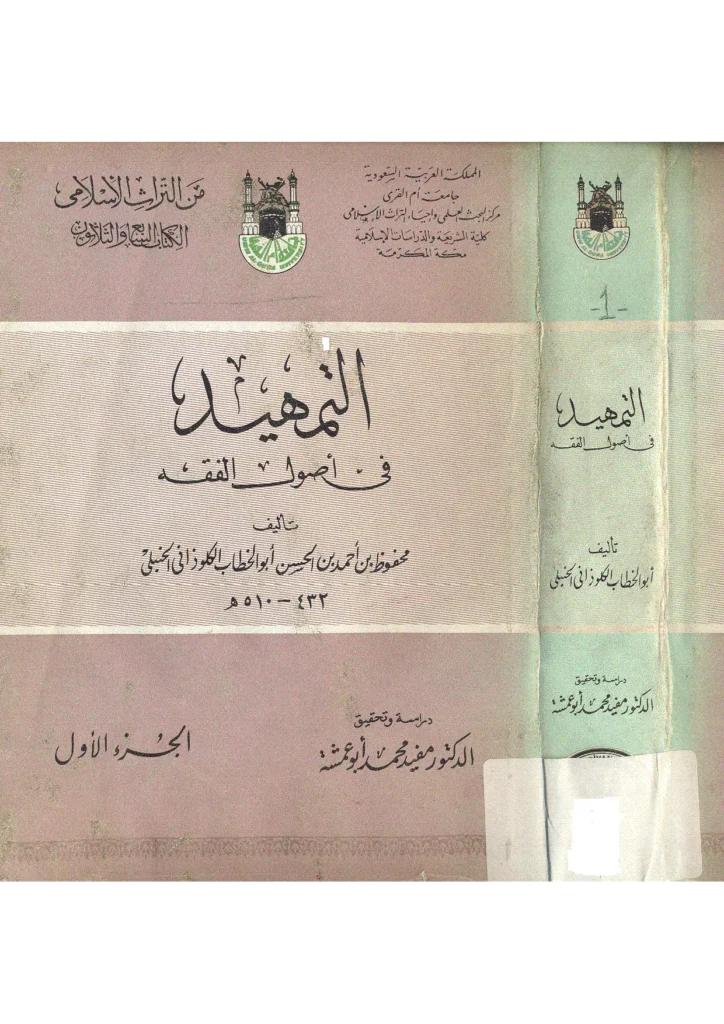 المملكة العربية السعودية
جامعة أم القرى
مركز البحث العلمى وإحياء التراث الإسلامى
كلية الشريعة والدراسات الإسلامية
مكة المكرمة
من التراث الإسلامى
الكتاب السابع والثلاثون
التمهيد
فى أصول الفقه
تأليف
محفوظ بن أحمد بن الحسن أبو الخطاب الكلوذانى الحنبلى
٤٣٢ - ٥١٠ هـ
دراسة وتحقيق
الدكتور مفيد محمد أبو عمشة
الجزء الأول
-1-
التمهيد
فى أصول الفقه
تأليف
أبو الخطاب الكلوذانى الحنبلى
دراسة وتحقيق
الدكتور مفيد محمد أبو عمشة